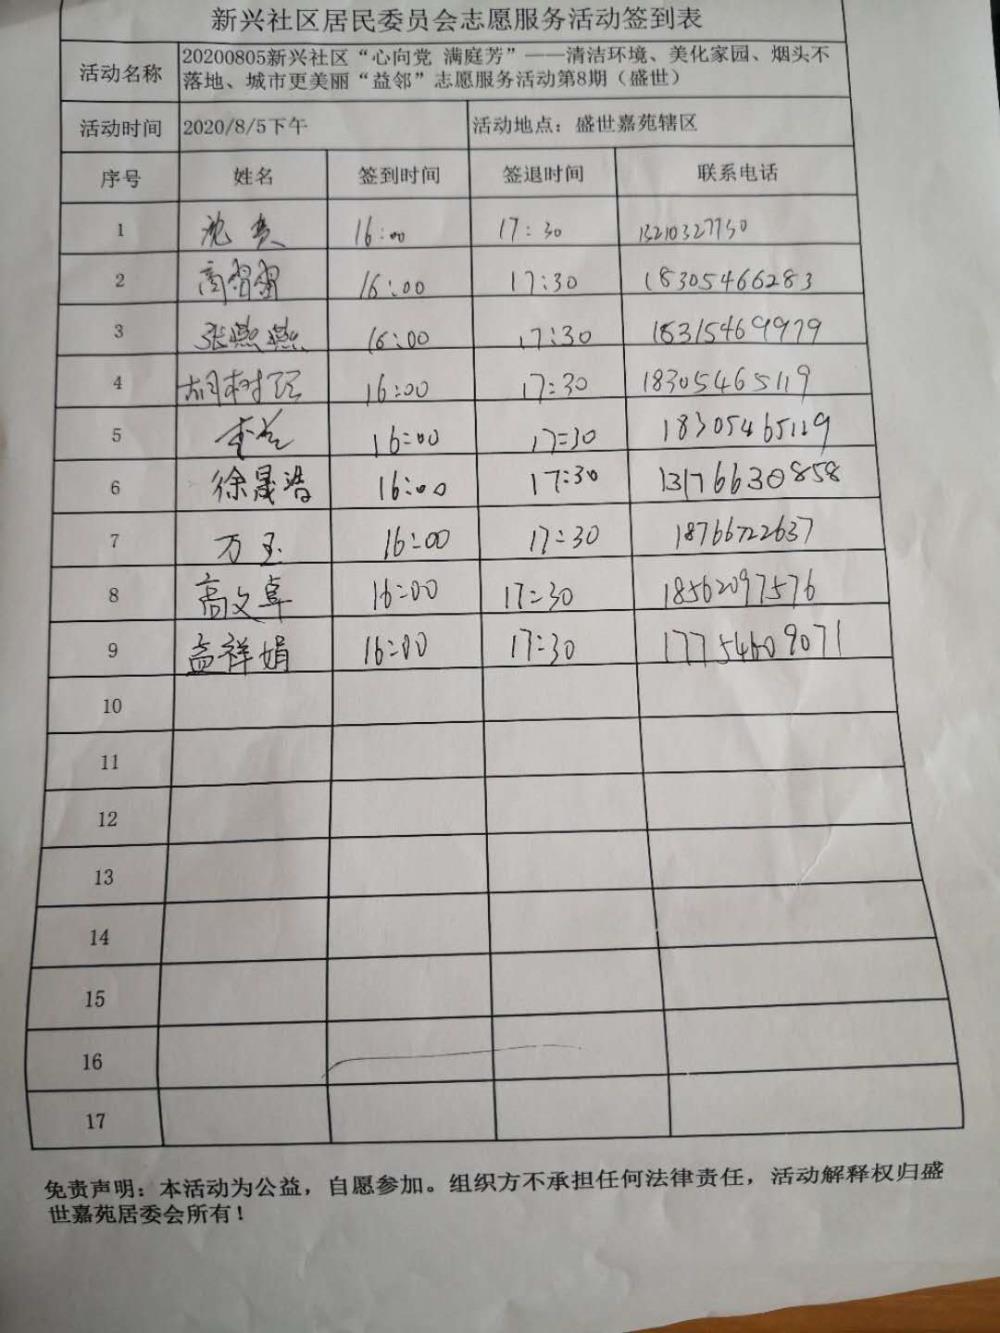 新兴社区居民委员会志愿服务活动签到表
活动名称 20200805新兴社区“心向党 满庭芳”——清洁环境、美化家园、烟头不
落地、城市更美丽“益邻”志愿服务活动第8期（盛世）
活动时间 2020/8/5下午 活动地点：盛世嘉苑辖区
序号 姓名 签到时间 签退时间 联系电话
1 16:00 17:30 13210327750
2 商習習 16:00 17:30 18305466283
3 张燕燕 16:00 17:30 18315469979
4 胡树 16:00 17:30 18305465119
5 16:00 17:30 18305465119
6 徐晟浩 16:00 17:30 13176630858
7 万玉 16:00 17:30 18766722637
8 高文卓 16:00 17:30 18562097576
9 孟祥娟 16:00 17:30 17754609071
10
11
12
13
14
15
16
17
免责声明：本活动为公益，自愿参加。组织方不承担任何法律责任，活动解释权归盛
世嘉苑居委会所有！